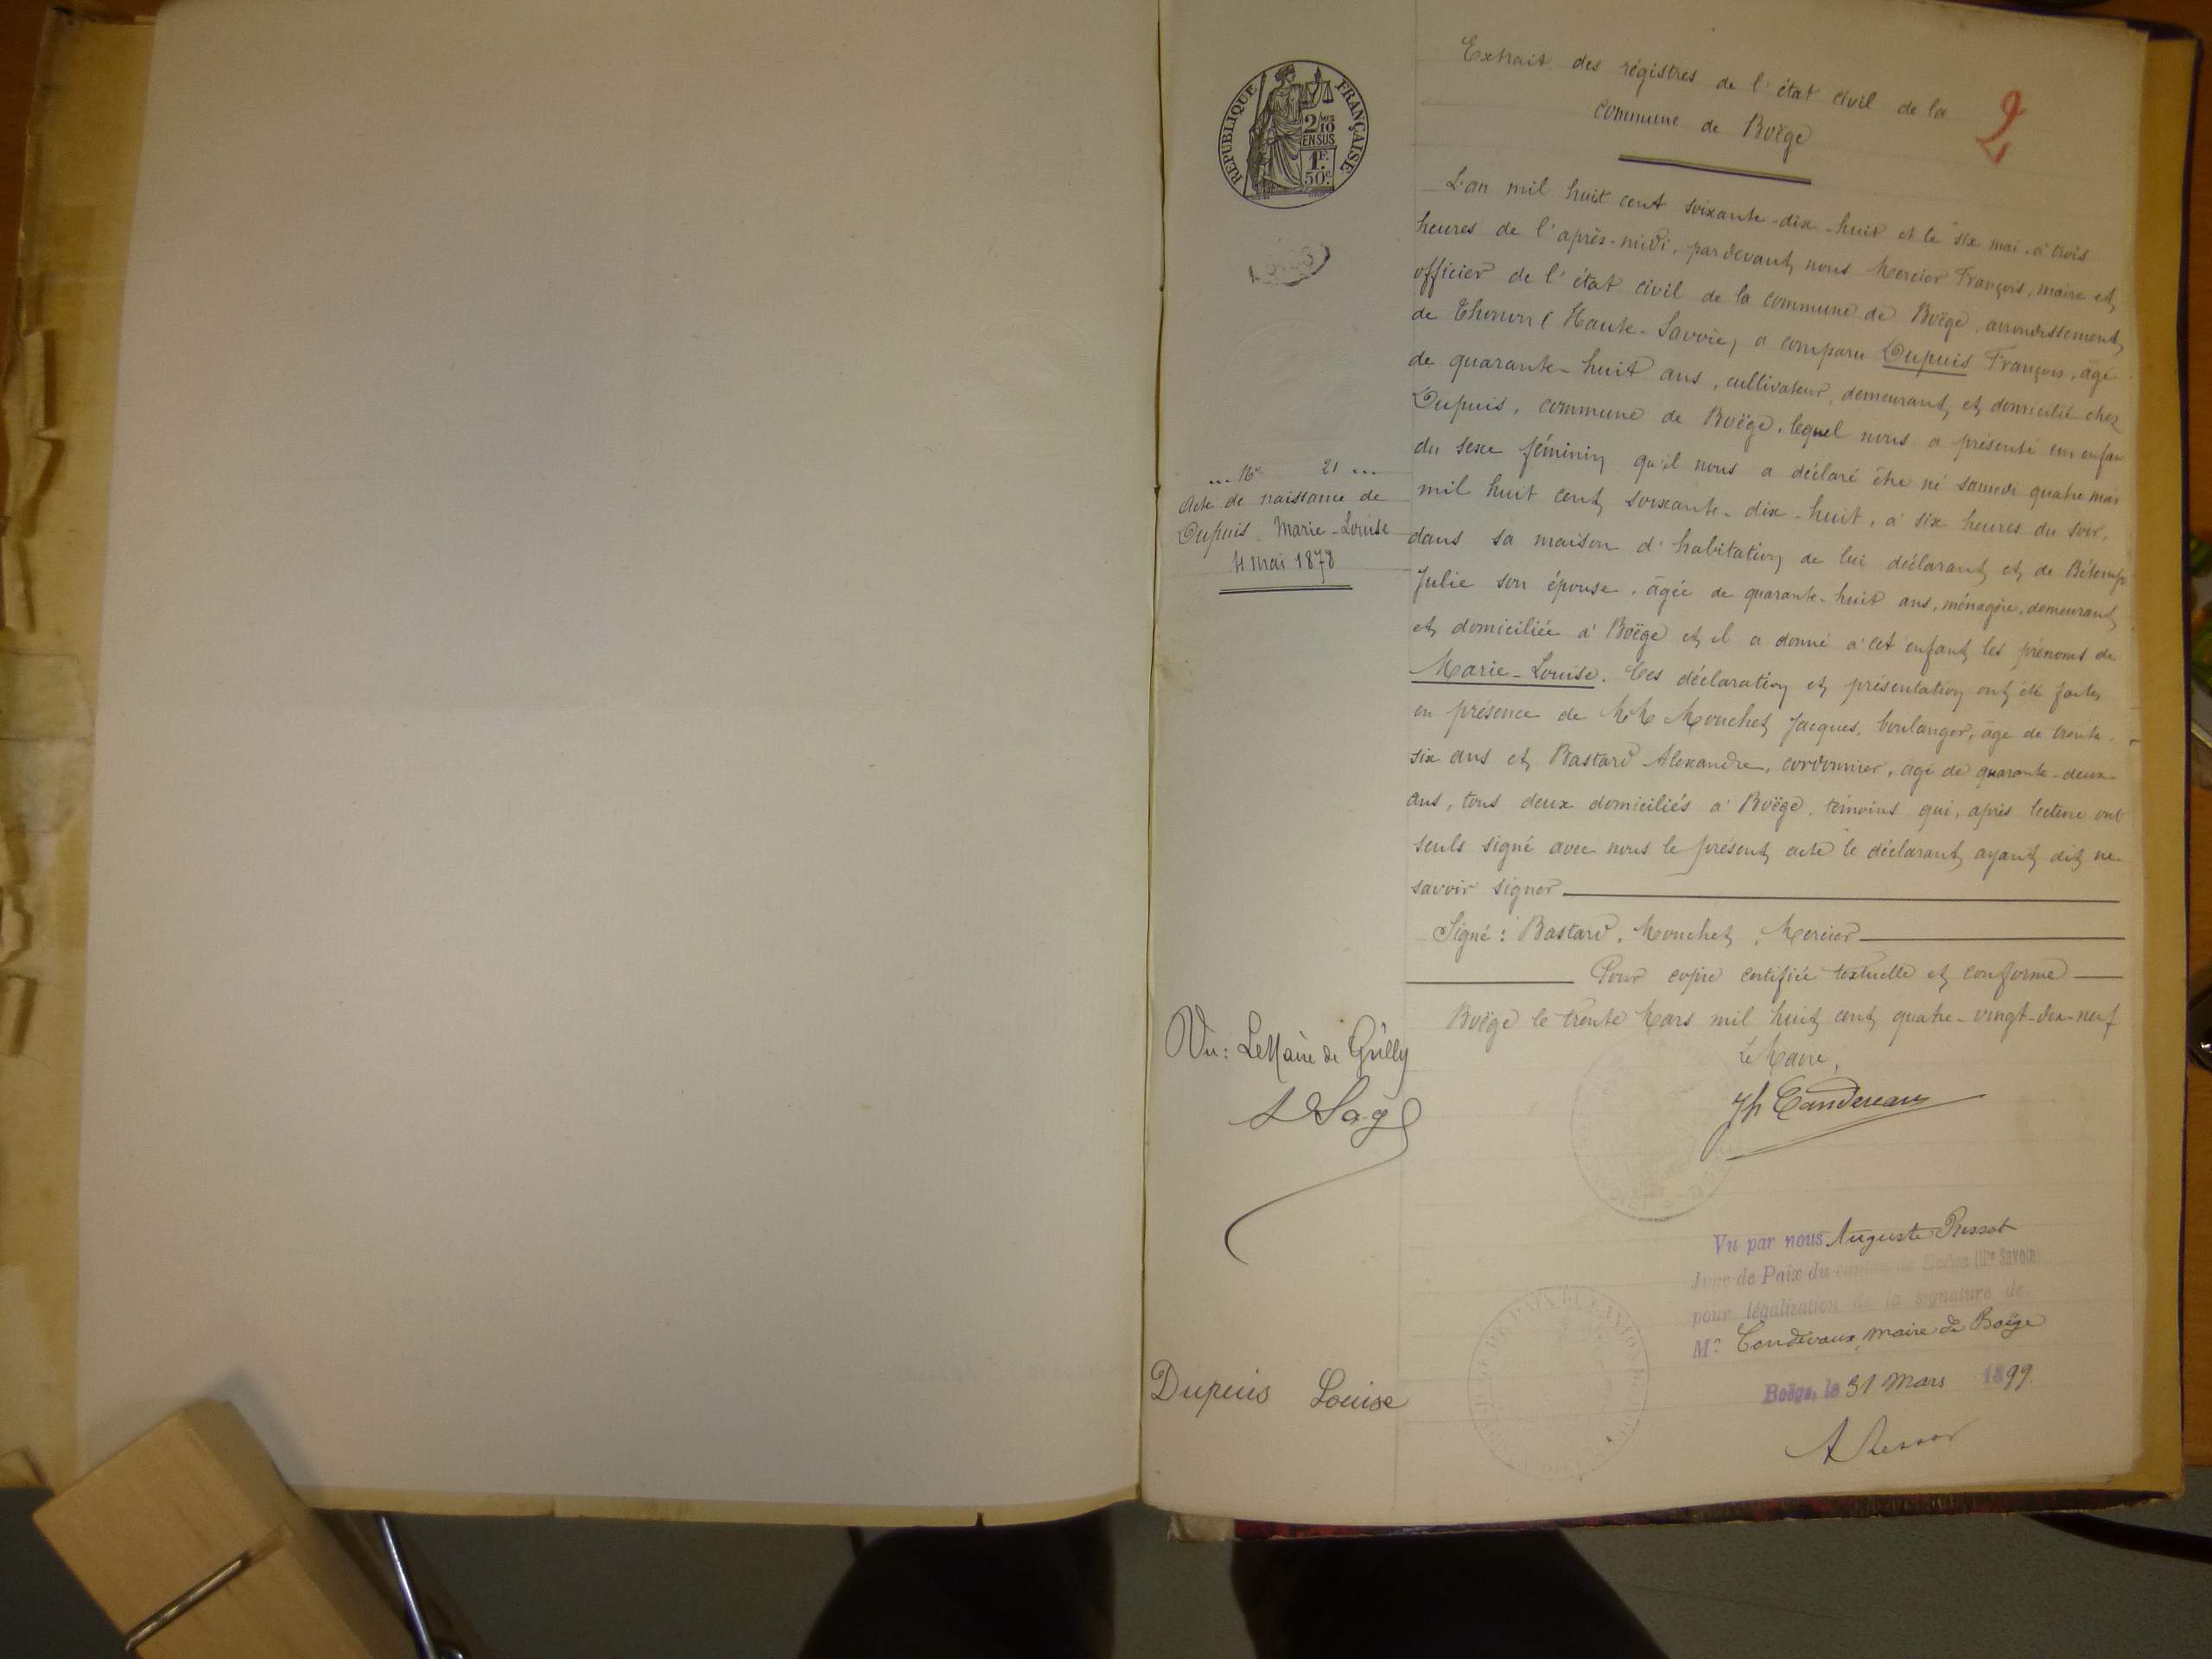 REPUBLIQUE FRANÇAISE
2/10MES
EN SUS
1F.
50c.
2
Extrait des régistres de l'état civil de la
commune de Boëge
L'an mil huit cent soixante-dix-huit et le six mai, à trois
heures de l'après-midi, pardevant nous Mercier François, maire et
officier de l'état civil de la commune de Boëge, arrondissement
de Thonon (Haute-Savoie) a comparu Dupuis François, âgé
de quarante-huit ans, cultivateur, demeurant et domicilié chez
Dupuis, commune de Boëge, lequel nous a présenté un enfan
du sexe féminin qu'il nous a déclaré être né samedi quatre mai
mil huit cent soixante-dix-huit, à six heures du soir,
dans sa maison d'habitation de lui déclarant et de Bétemps
Julie son épouse, âgée de quarante-huit ans, ménagère, demeurant
et domiciliée à Boëge et il a donné à cet enfant les prénoms de
Marie-Louise. Ces déclaration et présentation ont été faites
en présence de MM Mouchet Jacques, boulanger, âgé de trente-
six ans et Bastard Alexandre, cordonnier, âgé de quarante-deux
ans, tous deux domiciliés à Boëge, témoins qui, après lecture ont
seuls signé avec nous le présent acte le déclarant ayant dit ne
savoir signer
Signé : Bastard, Mouchet, Mercier
Pour copie certifiée textuelle et conforme
Boëge le trente Mars mil huit cent quatre-vingt-dix-neuf
Le Maire,
... No 21 ...
Acte de naissance de
Dupuis Marie-Louise
4 mai 1878
Vu : Le Maire de Grilly
Dupuis Louise
Vu par nous Auguste Ressat
Juge de Paix du canton de Boëge (Hte Savoie
pour légalisation de la signature de
Mr Condevaux, maire de Boëge
Boëge, le 31 Mars 1899.